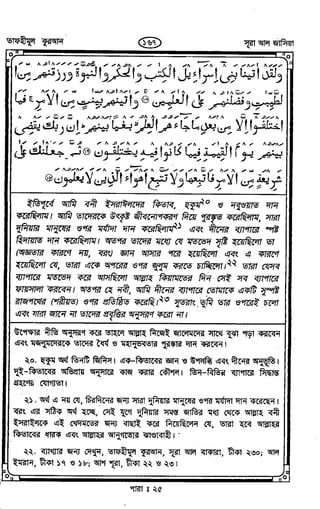 তাফহীমুল কুরআন
১৬৭
সূরা আল জাসিয়া
وَلَقَدْ اٰتَيْنَا بَنِيْٓ اِسْرَآءِيْلَ الْكِتٰبَ وَالْحُكْمَ وَالنُّبُوَّةَ وَرَزَقْنٰهُمْ مِّنَ
الطَّيِّبٰتِ وَفَضَّلْنٰهُمْ عَلَى الْعٰلَمِيْنَ ۝ وَاٰتَيْنٰهُمْ بَيِّنٰتٍ مِّنَ الْاَمْرِ ۚ فَمَا
اخْتَلَفُوْٓا اِلَّا مِنْۢ بَعْدِ مَا جَآءَهُمُ الْعِلْمُ ۙ بَغْيًاۢ بَيْنَهُمْ ۭ اِنَّ رَبَّكَ يَقْضِيْ
بَيْنَهُمْ يَوْمَ الْقِيٰمَةِ فِيْمَا كَانُوْا فِيْهِ يَخْتَلِفُوْنَ ۝ ثُمَّ جَعَلْنٰكَ عَلٰى
شَرِيْعَةٍ مِّنَ الْاَمْرِ فَاتَّبِعْهَا وَلَا تَتَّبِعْ اَهْوَآءَ الَّذِيْنَ لَا يَعْلَمُوْنَ ۝
ইতিপূর্বে আমি বনী ইসরাঈলদের কিতাব, হুকুম২০ ও নবুওয়াত দান
করেছিলাম। আমি তাদেরকে উৎকৃষ্ট জীবনোপকরণ দিয়ে পুরস্কৃত করেছিলাম, সারা
দুনিয়ার মানুষের ওপর মর্যাদা দান করেছিলাম২১ এবং দীনের ব্যাপারে স্পষ্ট
হিদায়াত দান করেছিলাম। অতপর তাদের মধ্যে যে মতভেদ সৃষ্টি হয়েছিলো তা
(অজ্ঞতার কারণে নয়, বরং) জ্ঞান আসার পরে হয়েছিলো এবং এ কারণে
হয়েছিলো যে, তারা একে অপরের ওপর জুলুম করতে চাচ্ছিলো।২২ তারা যেসব
ব্যাপারে মতভেদ করে আসছিলো আল্লাহ কিয়ামতের দিন সেই সব ব্যাপারে
ফায়সালা করবেন। অতপর হে নবী, আমি দীনের ব্যাপারে তোমাকে একটি সুস্পষ্ট
রাজপথের (শরীয়ত) ওপর প্রতিষ্ঠিত করেছি।২৩ সুতরাং তুমি তার ওপরেই চলো
এবং যারা জানে না তাদের প্রবৃত্তির অনুসরণ করো না।
উপেক্ষার নীতি অনুসরণ করে তাহলে আল্লাহ নিজেই জালেমদের সাথে বুঝা পড়া করবেন
এবং মজলুমদেরকে তাদের ধৈর্য ও মহানুভবতার পুরস্কার দান করবেন।
২০. হুকুম অর্থ তিনটি জিনিস। এক-কিতাবের জ্ঞান ও উপলব্ধি এবং দীনের অনুভূতি।
দুই-কিতাবের অভিপ্রায় অনুসারে কাজ করার কৌশল। তিন-বিভিন্ন ব্যাপারে সিদ্ধান্ত
গ্রহণের যোগ্যতা।
২১. অর্থ এ নয় যে, চিরদিনের জন্য সারা দুনিয়ার মানুষের ওপর মর্যাদা দান করেছেন।
বরং এর সঠিক অর্থ হচ্ছে, সেই যুগে দুনিয়ার সমস্ত জাতির মধ্য থেকে আল্লাহ বনী
ইসরাঈলকে এই খেদমতের জন্য বাছাই করে নিয়েছিলেন যে, তারা হবে আল্লাহর
কিতাবের ধারক এবং আল্লাহর আনুগত্যের ঝাণ্ডাবাহী।
২২. ব্যাখ্যার জন্য দেখুন, তাফহীমুল কুরআন, সূরা আল বাকারা, টীকা ২৩০; আল
ইমরান, টীকা ১৭ ও ১৮; আশ শূরা, টীকা ২২ ও ২৩।
পারা : ২৫